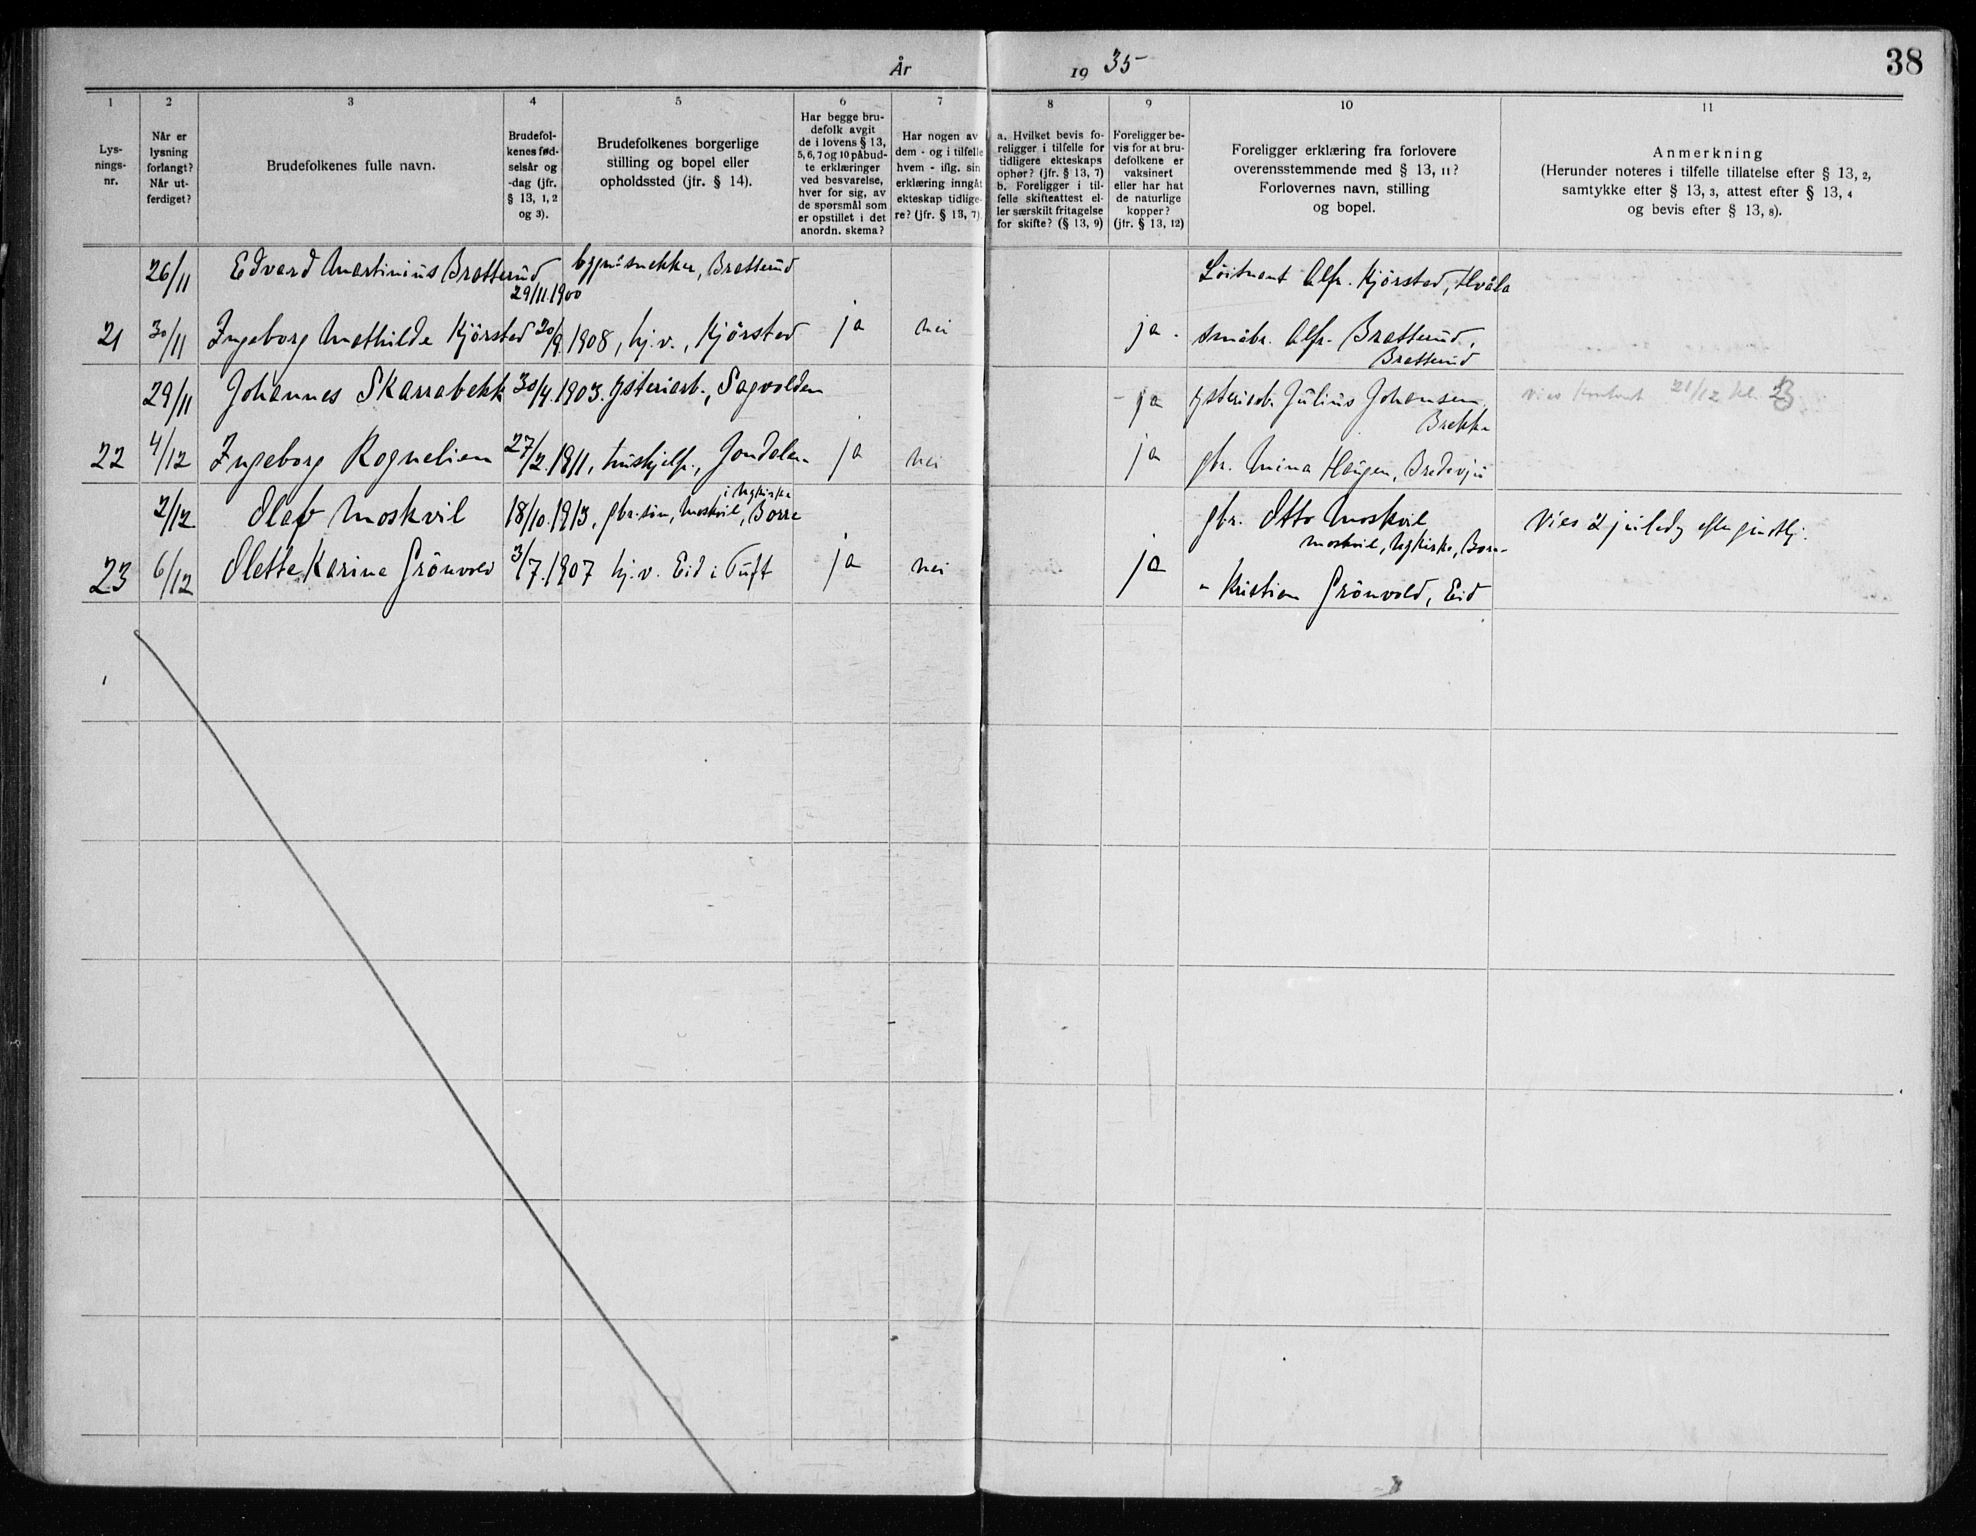 År 1935
38
1
2
3
4
5
6
7
8
9
10
11
Lys-
nings-
nr.
Når er
lysning
forlangt?
Når ut-
ferdiget?
Brudefolkenes fulle navn.
Brudefol-
kenes fød-
selsår og
-dag (jfr.
§ 13, 1, 2
og 3).
Brudefolkenes borgerlige
stilling og bopel eller
opholdssted (jfr. § 14).
Har begge bru-
defolk avgit
de i lovens § 13,
5, 6, 7 og 10 påbud-
te erklæringer
ved besvarelse,
hver for sig, av
de spørsmål som
er opstillet i det
anordn. skema?
Har nogen av
dem - og i tilfelle
hvem - iflg. sin
erklæring inngåt
ekteskap tidlige-
re? (jfr. § 13, 7).
a. Hvilket bevis fo-
religger i tilfelle for
tidligere ekteskaps
ophør? (jfr. § 13, 7)
b. Foreligger i til-
felle skifteattest el-
ler særskilt fritagelse
for skifte? (§ 13, 9)
Foreligger be-
vis for at bru-
defolkene er
vaksinert
eller har hat
de naturlige
kopper?
(jfr. § 13, 12)
Foreligger erklæring fra forlovere
overensstemmende med § 13, 11?
Forlovernes navn, stilling
og bopel.
Anmerkning
(Herunder noteres i tilfelle tillatelse efter § 13, 2,
samtykke efter § 13, 3, attest efter § 13, 4
og bevis efter § 13, 8).
26/11 Edvard Martinius Bratterud 29/11.1900 snekker, Bratterud
Løitnant Alfr. Kjørstad, Hvåla
21 30/11 Ingeborg Mathilde Kjørstad 20/9.1908, hj.v., Kjørstad ja nei ja. småbr. Alfr. Bratterud,
Bratterud
29/11 Johannes Skarrabekk 30/4.1903. ysteriarb., Sagvolden - ja ysteriarb. Julius Johansen 21/12 kl.
Brekke
22 4/12 Ingeborg Rognelien 27/2.1911, hushjelp., Jondalen ja nei ja gbr. Mina Haugen, Bredvju
2/12 Olaf Moskvil 18/10.1913, gbr.søn, Moskvil, i Nykirke Borre gbr. Otto Moskvil Vies 2 juledag efter gudstj.
Moskvil, Nykirke, Borre
23 6/12 Olette Karine Grönvold 3/7.1907 hj.v. Eid i Tuft ja nei ja
" Kristian Grönvold, Eid